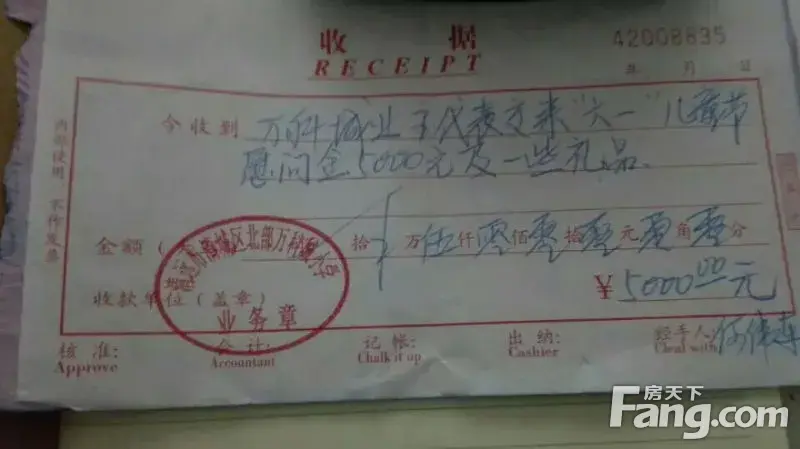 收 据
RECEIPT
42008835
年 月 日
今收到 万科城业主代表交来“六一”儿童节
慰问金5000元及一些礼品。
金额( 拾 万伍仟零佰零拾零元零角零分
收款单位(盖章)
¥ 5000.00元
业务章
核 准: 会 计: 记 帐: 出 纳: 经手人:
Approve Accountant Chalk it up Cashier Cleal with
内部使用,不作发票
房天下
Fang.com